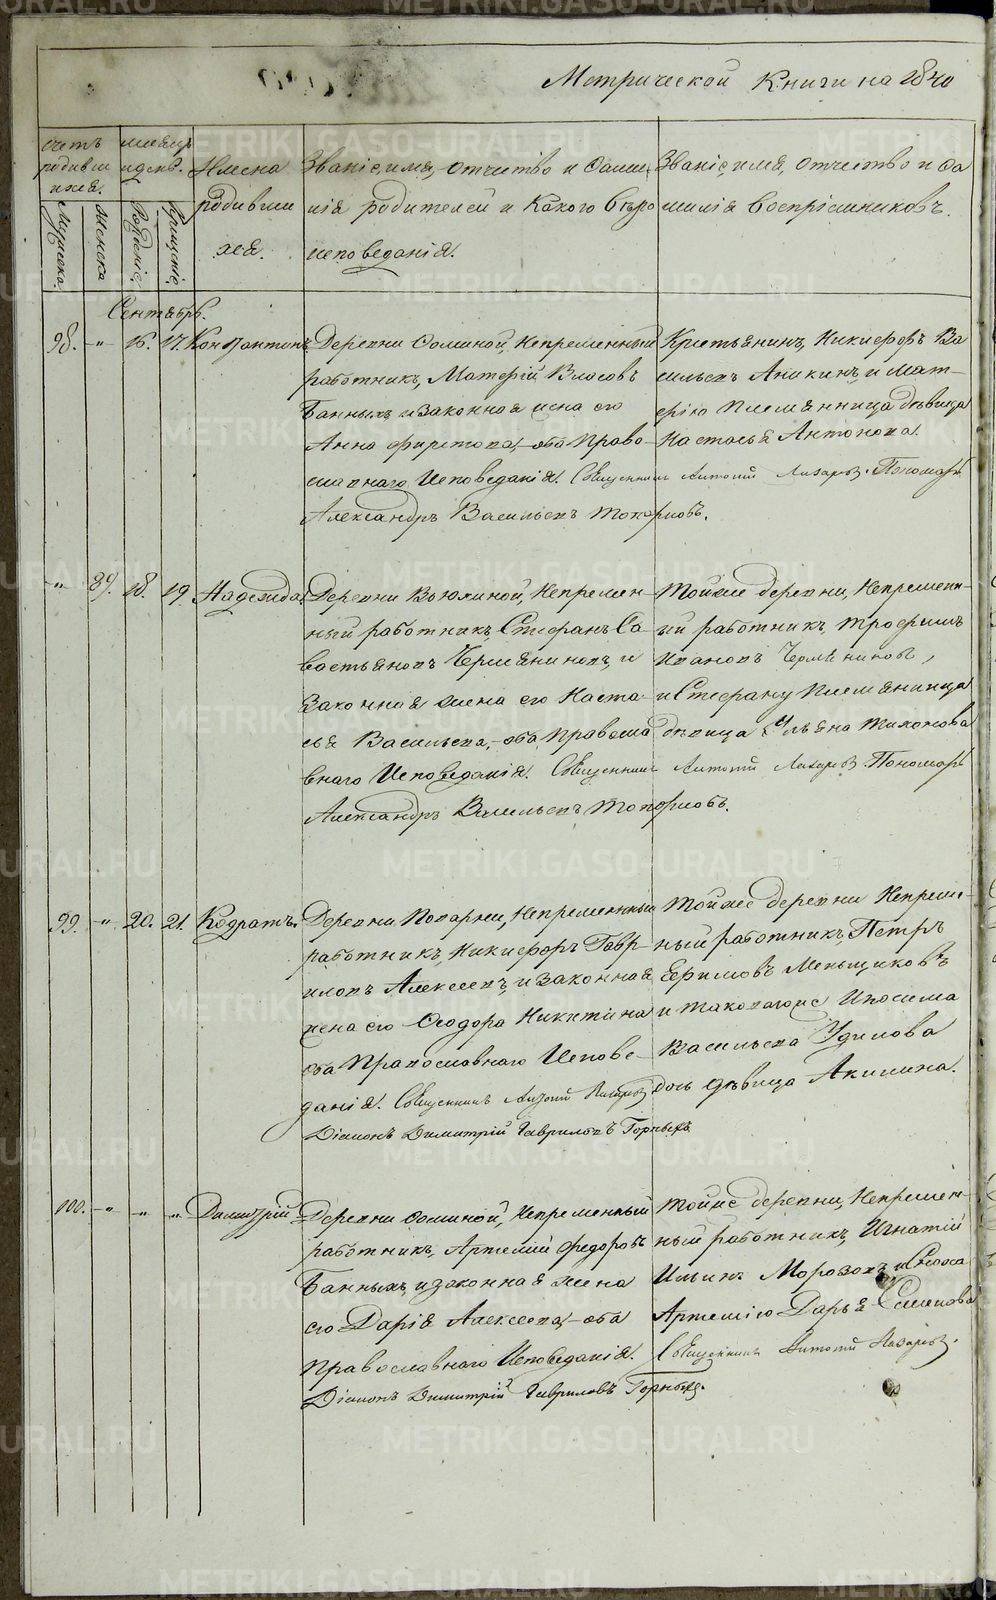 Метрической Книги на 1840
счетъ родившихся.
месяцъ и день.
Имена родившихся.
Званіе, имя, отчество и фамилія родителей и какого вероисповеданія.
Званіе, имя, отчество и фамилія воспріемниковъ.
Мужеска.
Женска.
Рожденіе
Крещеніе
Сентябрь.
98. -"- 16. 17. Константинъ
Деревни Фоминой, Непременный
работникъ, Матфей Власовъ
Банныхъ и законная жена его
Анна Фирстова, оба Право-
славнаго Исповеданія. Священникъ Антоній Лазаревъ. Пономарь
Александръ Васильевъ Топорковъ.
Крестьянинъ, Никифоръ Ва
сильевъ Аникинъ, и Мат-
фею племянница девица
Настасья Антонова.
-"- 89. 18. 19. Надежда.
Деревни Вьюхиной, Непремен-
ный работникъ, Стефанъ Са-
востьяновъ Чермяниновъ, и
законная жена его Наста-
сья Васильева, оба Правосла
внаго Исповеданія. Священникъ Антоній Лазаревъ. Пономарь
Александръ Васильевъ Топорковъ.
Тойже деревни, Непременн-
ый работникъ, Трофимъ
Ивановъ
и Стефану племянница
девица Ульяна Тихонова
99. -"- 20. 21. Кодратъ.
Деревни Поварни, Непременный
работникъ, Никифоръ Гавр-
иловъ Алексеевъ, и законная
жена его Феодора Никитина
оба Православнаго Испове-
данія. Священникъ Антоній Лазаревъ
Діаконъ Димитрій Гавриловъ Горныхъ
Тойже деревни Непреме-
нный работникъ, Петръ
Ефимовъ Меньщиковъ
и таковагоже
Васильева Удилова
дочь девица Акилина.
100. -"- -"- -"- Димитрій
Деревни Фоминой, Непременный
работникъ, Артемій Федоровъ
Банныхъ, и законная жена
его Дарія Алексеева, оба
Православнаго Исповеданія. Священникъ Антоній Лазаревъ.
Діаконъ Димитрій Гавриловъ Горныхъ.
Тойже деревни, Непремен-
ный работникъ, Игнатій
Ильинъ Морозовъ, и Сноха
Артемію Дарья Семенова
METRIKI.GASO-URAL.RU